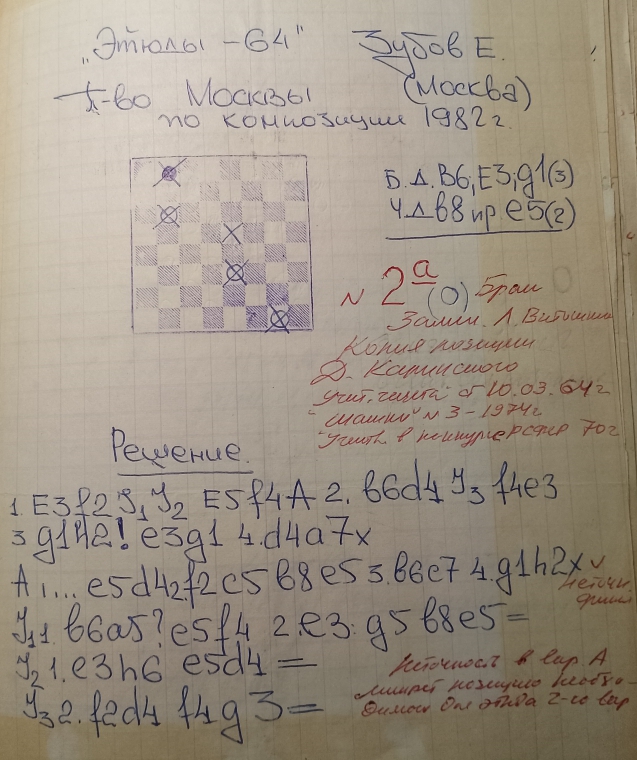 „Этюды - 64"
Зубов Е.
(Москва)
I-во Москвы
по композиции 1982 г.
Б.Д. В6, Е3, g1 (3)
Ч.Д в8 пр e5 (2)
N 2а (0) Брак
Замеч. Л. Витошкин
Копия позиции
Д. Калинского
"Учит. газета" от 10.03.64 г
"Шашки" N 3 - 1974 г
Решение.
1. Е3f2 J1 J2 Е5f4 А 2. в6d4 J3 f4e3
3 g1h2! e3g1 4. d4a7x
А 1,... e5d4 2 f2c5 в8e5 3. в6c7 4. g1h2x v
J1 1. в6a5? e5f4 2. e3: g5 в8e5 =
J2 1. e3h6 e5d4 =
J3 2. f2d4 f4g3 =
Неточность в вар. А
лишает позицию необхо-
димых для этюда 2-го вар